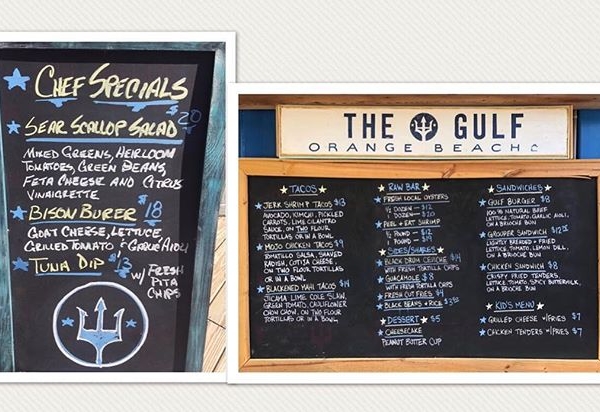 CHEF SPECIALS
SEAR SCALLOP SALAD $20
MIXED GREENS, HEIRLOOM
TOMATOES, GREEN BEANS,
FETA CHEESE AND CITRUS
VINAIGRETTE
BISON BURER $18
GOAT CHEESE, LETTUCE
GRILLED TOMATO & GARLIC AIOLI
TUNA DIP $13
W/ FRESH
PITA
CHIPS
THE GULF
ORANGE BEACH
TACOS
JERK SHRIMP TACOS $13
AVOCADO, KIMCHI, PICKLED
CARROTS, LIME CILANTRO
SAUCE, ON TWO FLOUR
TORTILLAS OR IN A BOWL
MOJO CHICKEN TACOS $9
TOMATILLO SALSA, SHAVED
RADISH, COTIJA CHEESE
ON TWO FLOUR TORTILLAS
OR IN A BOWL
BLACKENED MAHI TACOS $14
JICAMA LIME COLE SLAW,
GREEN TOMATO, CAULIFLOWER
CHOW CHOW, ON TWO FLOUR
TORTILLAS OR IN A BOWL
RAW BAR
FRESH LOCAL OYSTERS
1/2 DOZEN - $12
1 DOZEN - $20
PEEL + EAT SHRIMP
1/2 POUND - $12
1 POUND - $19
SIDES/SHARES
BLACK DRUM CEVICHE $14
WITH FRESH TORTILLA CHIPS
GUACAMOLE $8
WITH FRESH TORTILLA CHIPS
FRESH CUT FRIES $4
BLACK BEANS + RICE
DESSERT $5
CHEESECAKE
PEANUT BUTTER CUP
SANDWICHES
GULF BURGER $8
100% NATURAL BEEF
LETTUCE, TOMATO, GARLIC AIOLI,
ON A BRIOCHE BUN
GROUPER SANDWICH
LIGHTLY BREADED + FRIED
LETTUCE, TOMATO, LEMON DILL,
ON A BRIOCHE BUN
CHICKEN SANDWICH $8
CRISPY FRIED TENDERS,
LETTUCE, TOMATO, SPICY BUTTERMILK,
ON A BRIOCHE BUN
KID'S MENU
GRILLED CHEESE W/FRIES $7
CHICKEN TENDERS W/FRIES $7